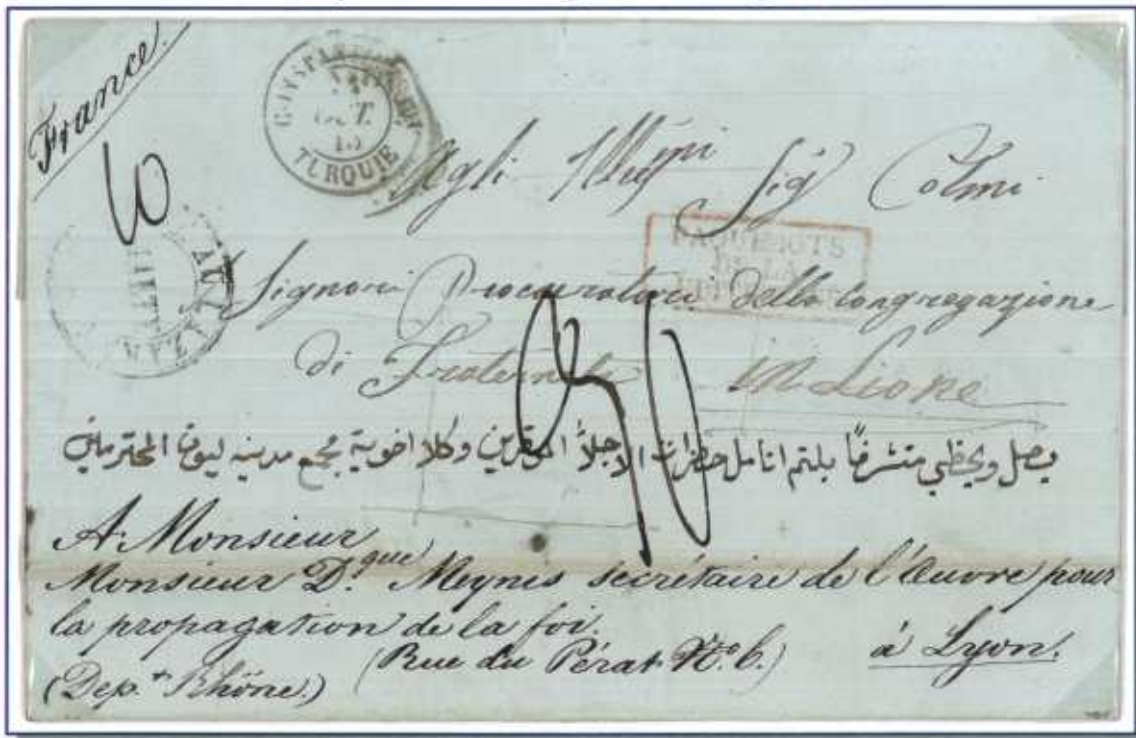 France.
TURQUIE
10
Agli Sig Colmi
PAQUEBOTS
DE LA
Signori Procuratori della Congregazione
di Fraternita in Lione
يصل ويحظى متشرفاً بلثم انامل حضرات الاجلاّ الموقرين وكلا اخوية مجمع مدينة ليون المحترمين
A Monsieur
Monsieur D.que Meynis secrétaire de l'Œuvre pour
la propagation de la foi.
(Rue du Pérat No. 6.) à Lyon.
(Dep.t Rhône.)